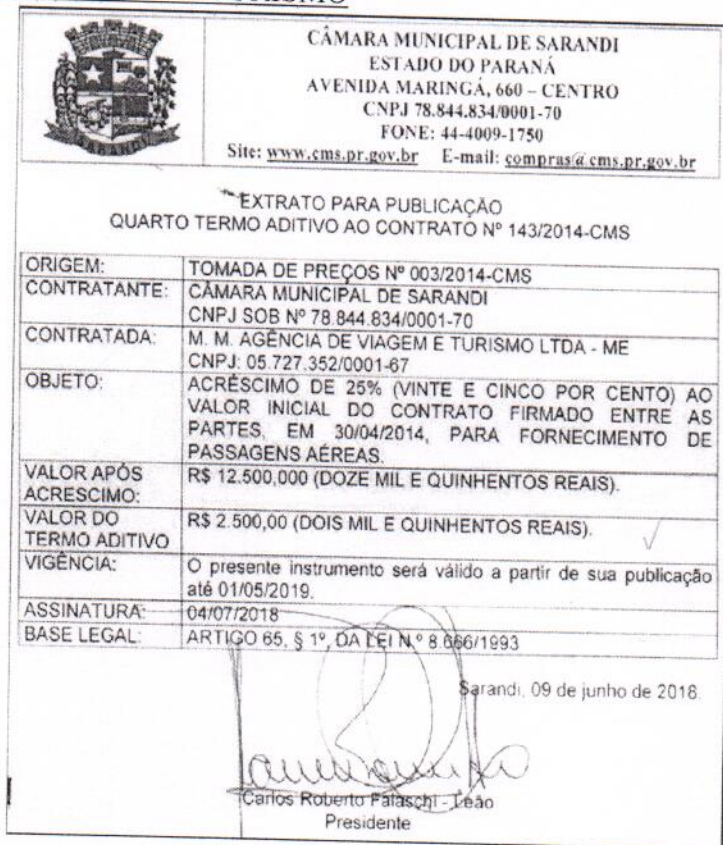 CÂMARA MUNICIPAL DE SARANDI
ESTADO DO PARANÁ
AVENIDA MARINGÁ, 660 – CENTRO
CNPJ 78.844.834/0001-70
FONE: 44-4009-1750
Site: www.cms.pr.gov.br E-mail: compras@cms.pr.gov.br
SARANDI
EXTRATO PARA PUBLICAÇÃO
QUARTO TERMO ADITIVO AO CONTRATO Nº 143/2014-CMS
ORIGEM: TOMADA DE PREÇOS Nº 003/2014-CMS
CONTRATANTE: CÂMARA MUNICIPAL DE SARANDI
CNPJ SOB Nº 78.844.834/0001-70
CONTRATADA: M. M. AGÊNCIA DE VIAGEM E TURISMO LTDA - ME
CNPJ: 05.727.352/0001-67
OBJETO: ACRÉSCIMO DE 25% (VINTE E CINCO POR CENTO) AO
VALOR INICIAL DO CONTRATO FIRMADO ENTRE AS
PARTES, EM 30/04/2014, PARA FORNECIMENTO DE
PASSAGENS AÉREAS.
VALOR APÓS R$ 12.500,000 (DOZE MIL E QUINHENTOS REAIS).
ACRESCIMO:
VALOR DO R$ 2.500,00 (DOIS MIL E QUINHENTOS REAIS).
TERMO ADITIVO
VIGÊNCIA: O presente instrumento será válido a partir de sua publicação
até 01/05/2019.
ASSINATURA: 04/07/2018
BASE LEGAL: ARTIGO 65, § 1º, DA LEI N.º 8.666/1993
Sarandi, 09 de junho de 2018.
Carlos Roberto Falaschi - Leão
Presidente